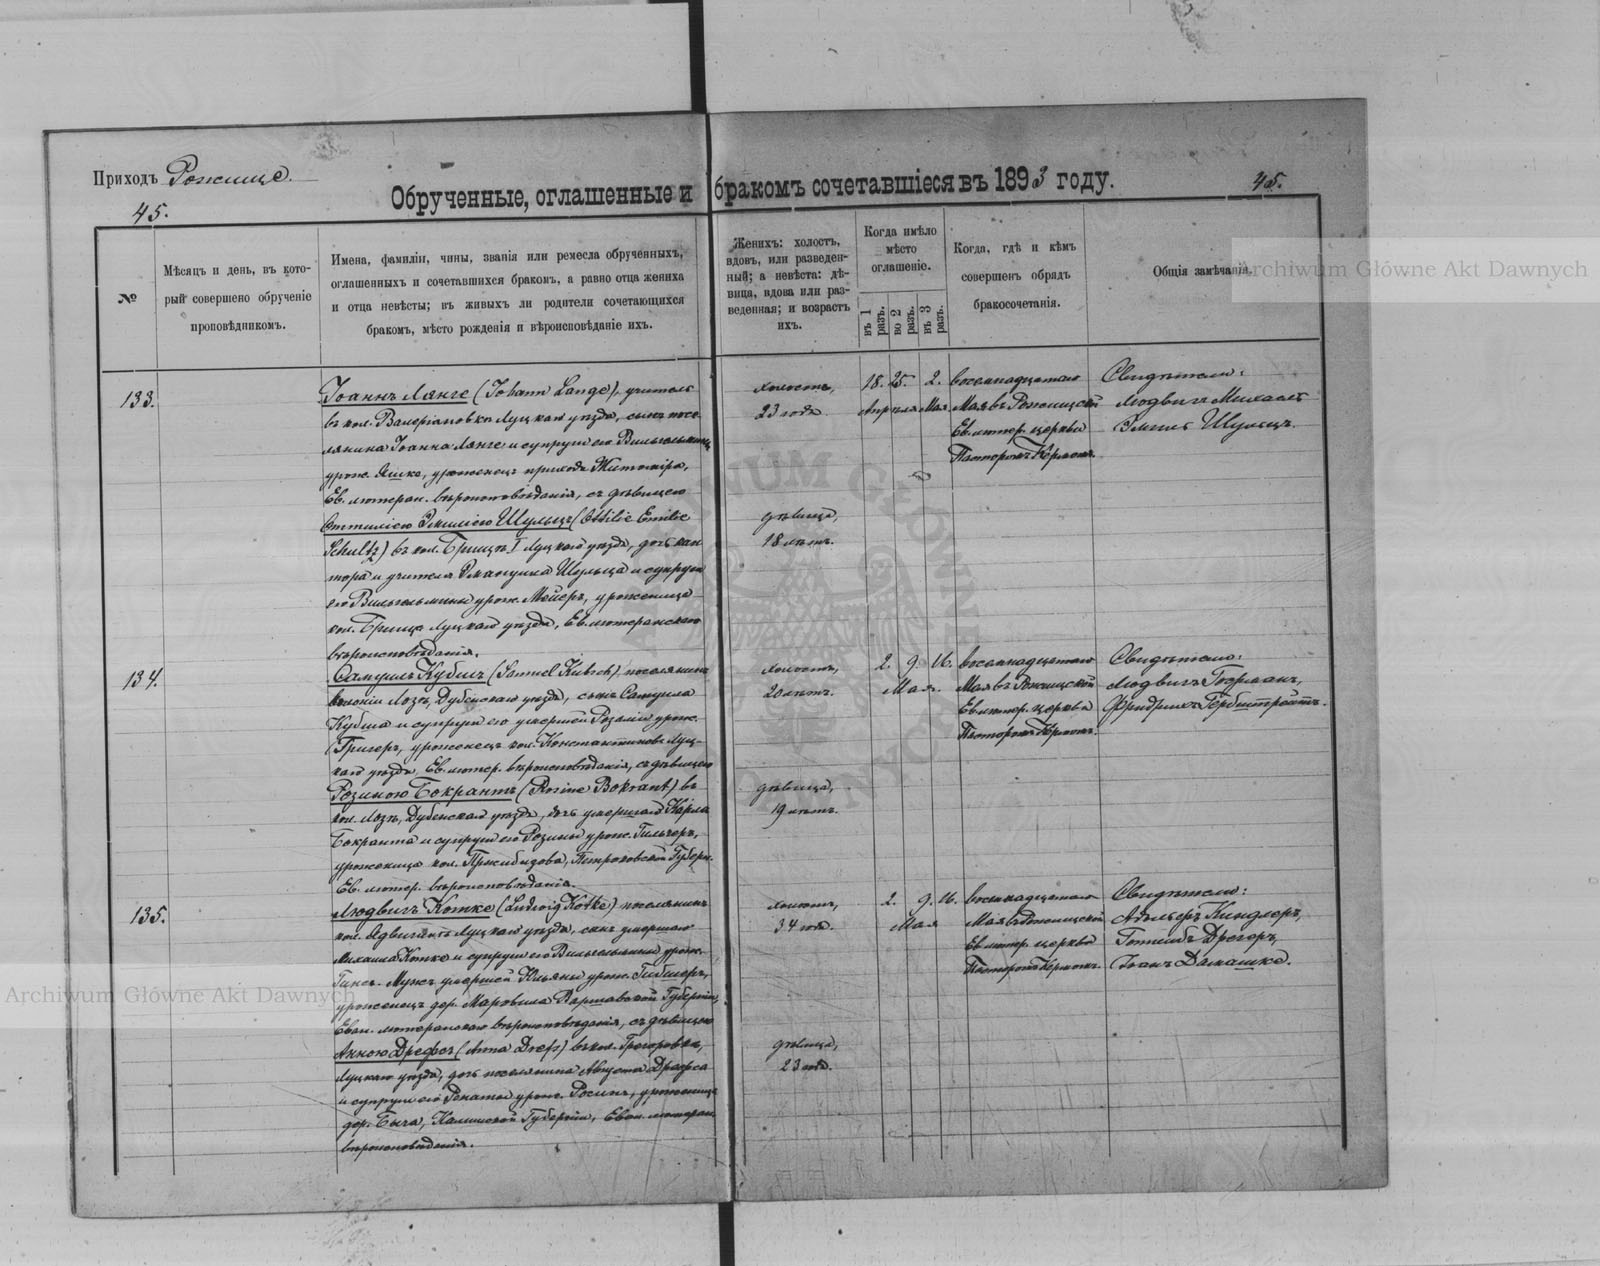 Приходъ Рожище.
45.
Обрученные, оглашенные и бракомъ сочетавшіеся въ 1893 году.
45.
№
Мѣсяцъ и день, въ кото-
рый совершено обрученіе
проповѣдникомъ.
Имена, фамиліи, чины, званія или ремесла обрученныхъ,
оглашенныхъ и сочетавшихся бракомъ, а равно отца жениха
и отца невѣсты; въ живыхъ ли родители сочетающихся
бракомъ, мѣсто рожденія и вѣроисповѣданіе ихъ.
Женихъ: холостъ,
вдовъ, или разведен-
ный; а невѣста: дѣ-
вица, вдова или раз-
веденная; и возрастъ
ихъ.
Когда имѣло
мѣсто
оглашеніе.
въ 1 разъ.
во 2 разъ.
въ 3 разъ.
Когда, гдѣ и кѣмъ
совершенъ обрядъ
бракосочетанія.
Общія замѣчанія.
133.
Іоаннъ Лянге (Johann Lange), учитель
въ кол. Валеріановкѣ Луцкаго уѣзда, сынъ посе-
лянина Іоанна Лянге и супруги его Вильгельмины
урож. Яшке, уроженецъ прихода Житоміра,
Ев. лютеран. вѣроисповѣданія, съ дѣвицею
Оттиліею Эмиліею Шульцъ (Ottilie Emilie
Schultz) въ кол. Брищѣ I Луцкаго уѣзда, дочь кан-
тора и учителя Эмануила Шульца и супруги
его Вильгельмины урож. Мейеръ, уроженица
кол. Брище Луцкаго уѣзда, Ев. лютеранскаго
вѣроисповѣданія.
холостъ,
23 года.
дѣвица,
18 лѣтъ.
18. 25. 2.
Апрѣля Мая.
восемнадцатаго
Мая въ Рожищской
Ев. лютер. церкви
Пасторомъ Кермомъ.
Свидѣтели:
Людвигъ Михаель
Эмиль Шульцъ.
134.
Самуилъ Кубшъ (Samuel Kubsch) поселянинъ
колоніи Лозъ, Дубенскаго уѣзда, сынъ Самуила
Кубша и супруги его умершей Розаліи урож.
Григеръ, уроженецъ кол. Константиновъ Луц-
каго уѣзда, Ев. лютер. вѣроисповѣданія, съ дѣвицею
Розиною Бокрантъ (Rosine Bokrant) въ
кол. Лозъ, Дубенскаго уѣзда, дочь умершаго Карла
Бокранта и супруги его Розины урож. Гильгеръ,
уроженица кол. Петроковской Губерн.
Ев. лютер. вѣроисповѣданія.
холостъ,
20 лѣтъ.
дѣвица,
19 лѣтъ.
2. 9. 16.
Мая.
восемнадцатаго
Мая въ Рожищской
Ев. лютер. церкви
Пасторомъ Кермомъ.
Свидѣтели:
Людвигъ Гофманъ,
Фридрихъ Гербштрейтъ.
135.
Людвигъ Котке (Ludwig Kotke) поселянинъ
кол. Ядвигинъ Луцкаго уѣзда, сынъ умершаго
Михаила Котке и супруги его Вильгельмины урож.
Гинсъ. Мужъ умершей Юльяны урож.
уроженецъ дер. Варшавской Губерніи,
Еван. лютеранскаго вѣроисповѣданія, съ дѣвицею
Анною Дрефсъ (Anna Drefs) въ кол. Грегоровкѣ,
Луцкаго уѣзда, дочь поселянина Августа Дрефса
и супруги его Ренаты урож. уроженица
дер. Калишской Губерніи, Еван. лютеран.
вѣроисповѣданія.
34 года.
дѣвица,
23 года.
2. 9. 16.
Мая
восемнадцатаго
Мая въ Рожищской
Ев. лютер. церкви
Пасторомъ Кермомъ.
Свидѣтели:
Адольфъ Киндлеръ,
Готлибъ Дрегеръ,
Іоанъ Дамашке.
Archiwum Główne Akt Dawnych
Archiwum Główne Akt Dawnych